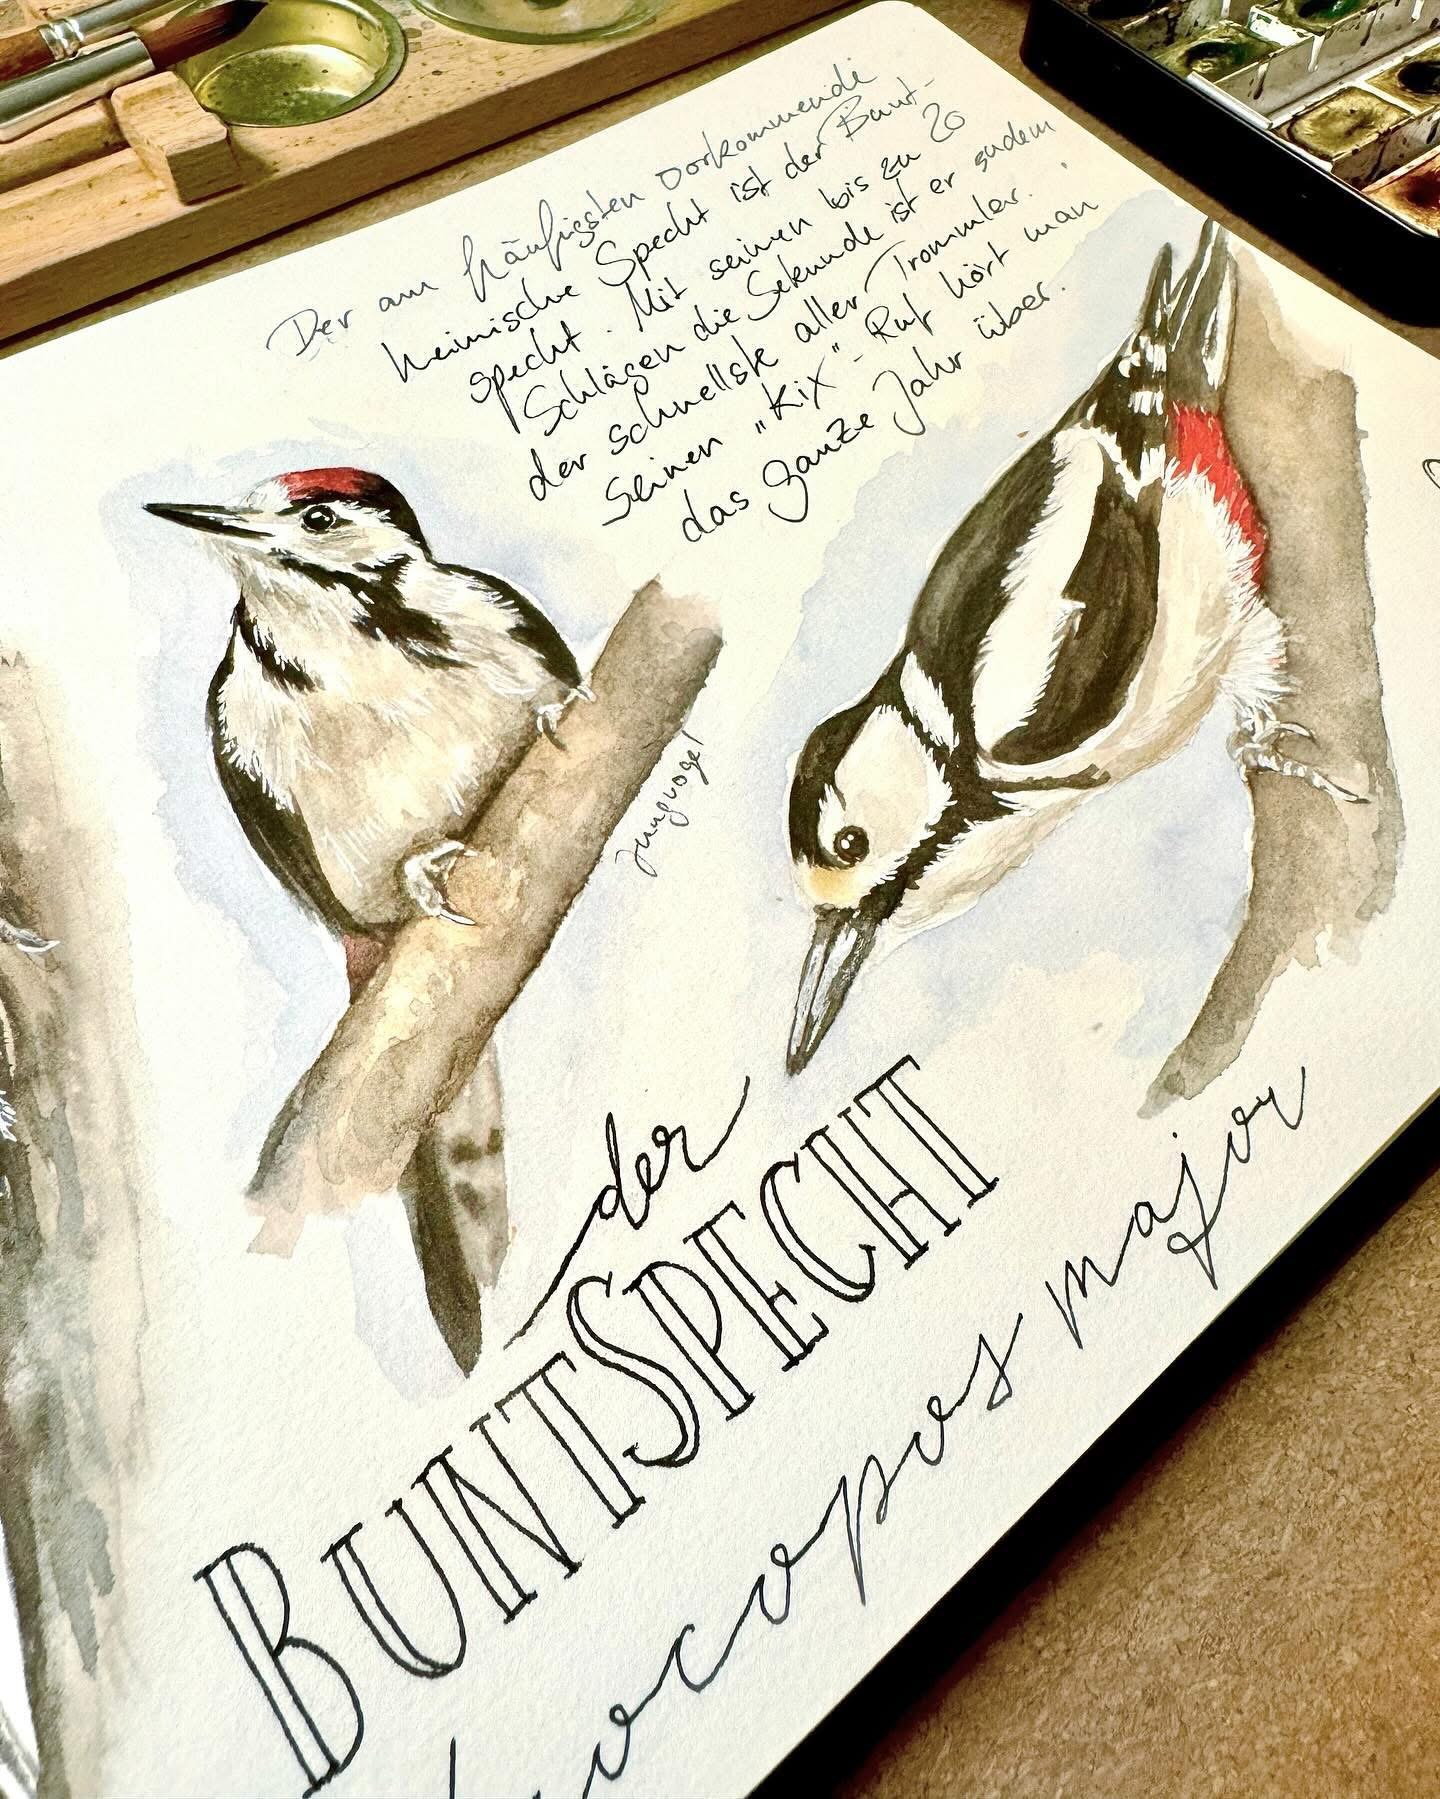 Der am häufigsten vorkommende
heimische Specht ist der Bunt-
specht. Mit seinen bis zu 20
Schlägen die Sekunde ist er zudem
der schnellste aller Trommler.
Seinen „Kix"-Ruf hört man
das ganze Jahr über.
Jungvogel
der
BUNTSPECHT
major